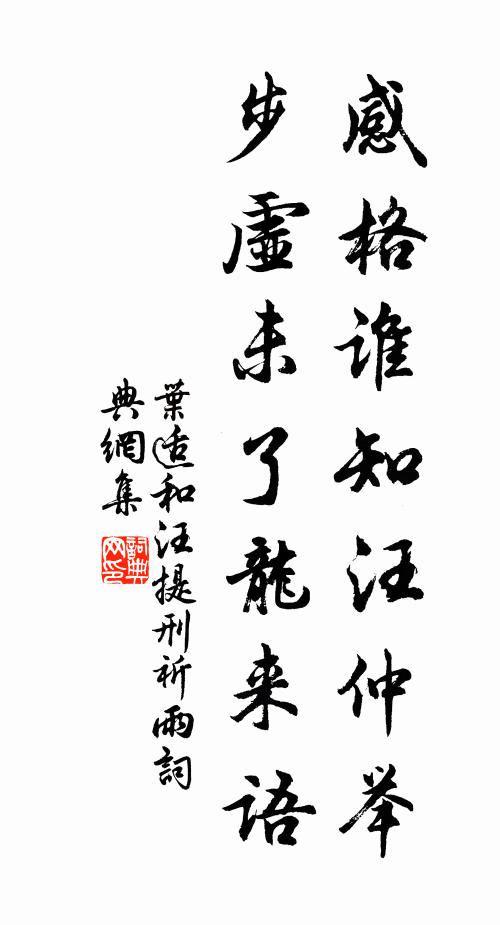 感格谁知汪仲举
步虚未了龍来语
葉適和汪提刑祈雨詞
典網集
詞典网印